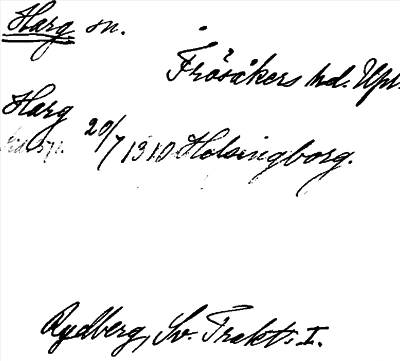 Harg sn.
Frösåkers hd. Upl.
Harg
20/7 1310 Helsingborg.
Rydberg, Sv. Trakt. I.